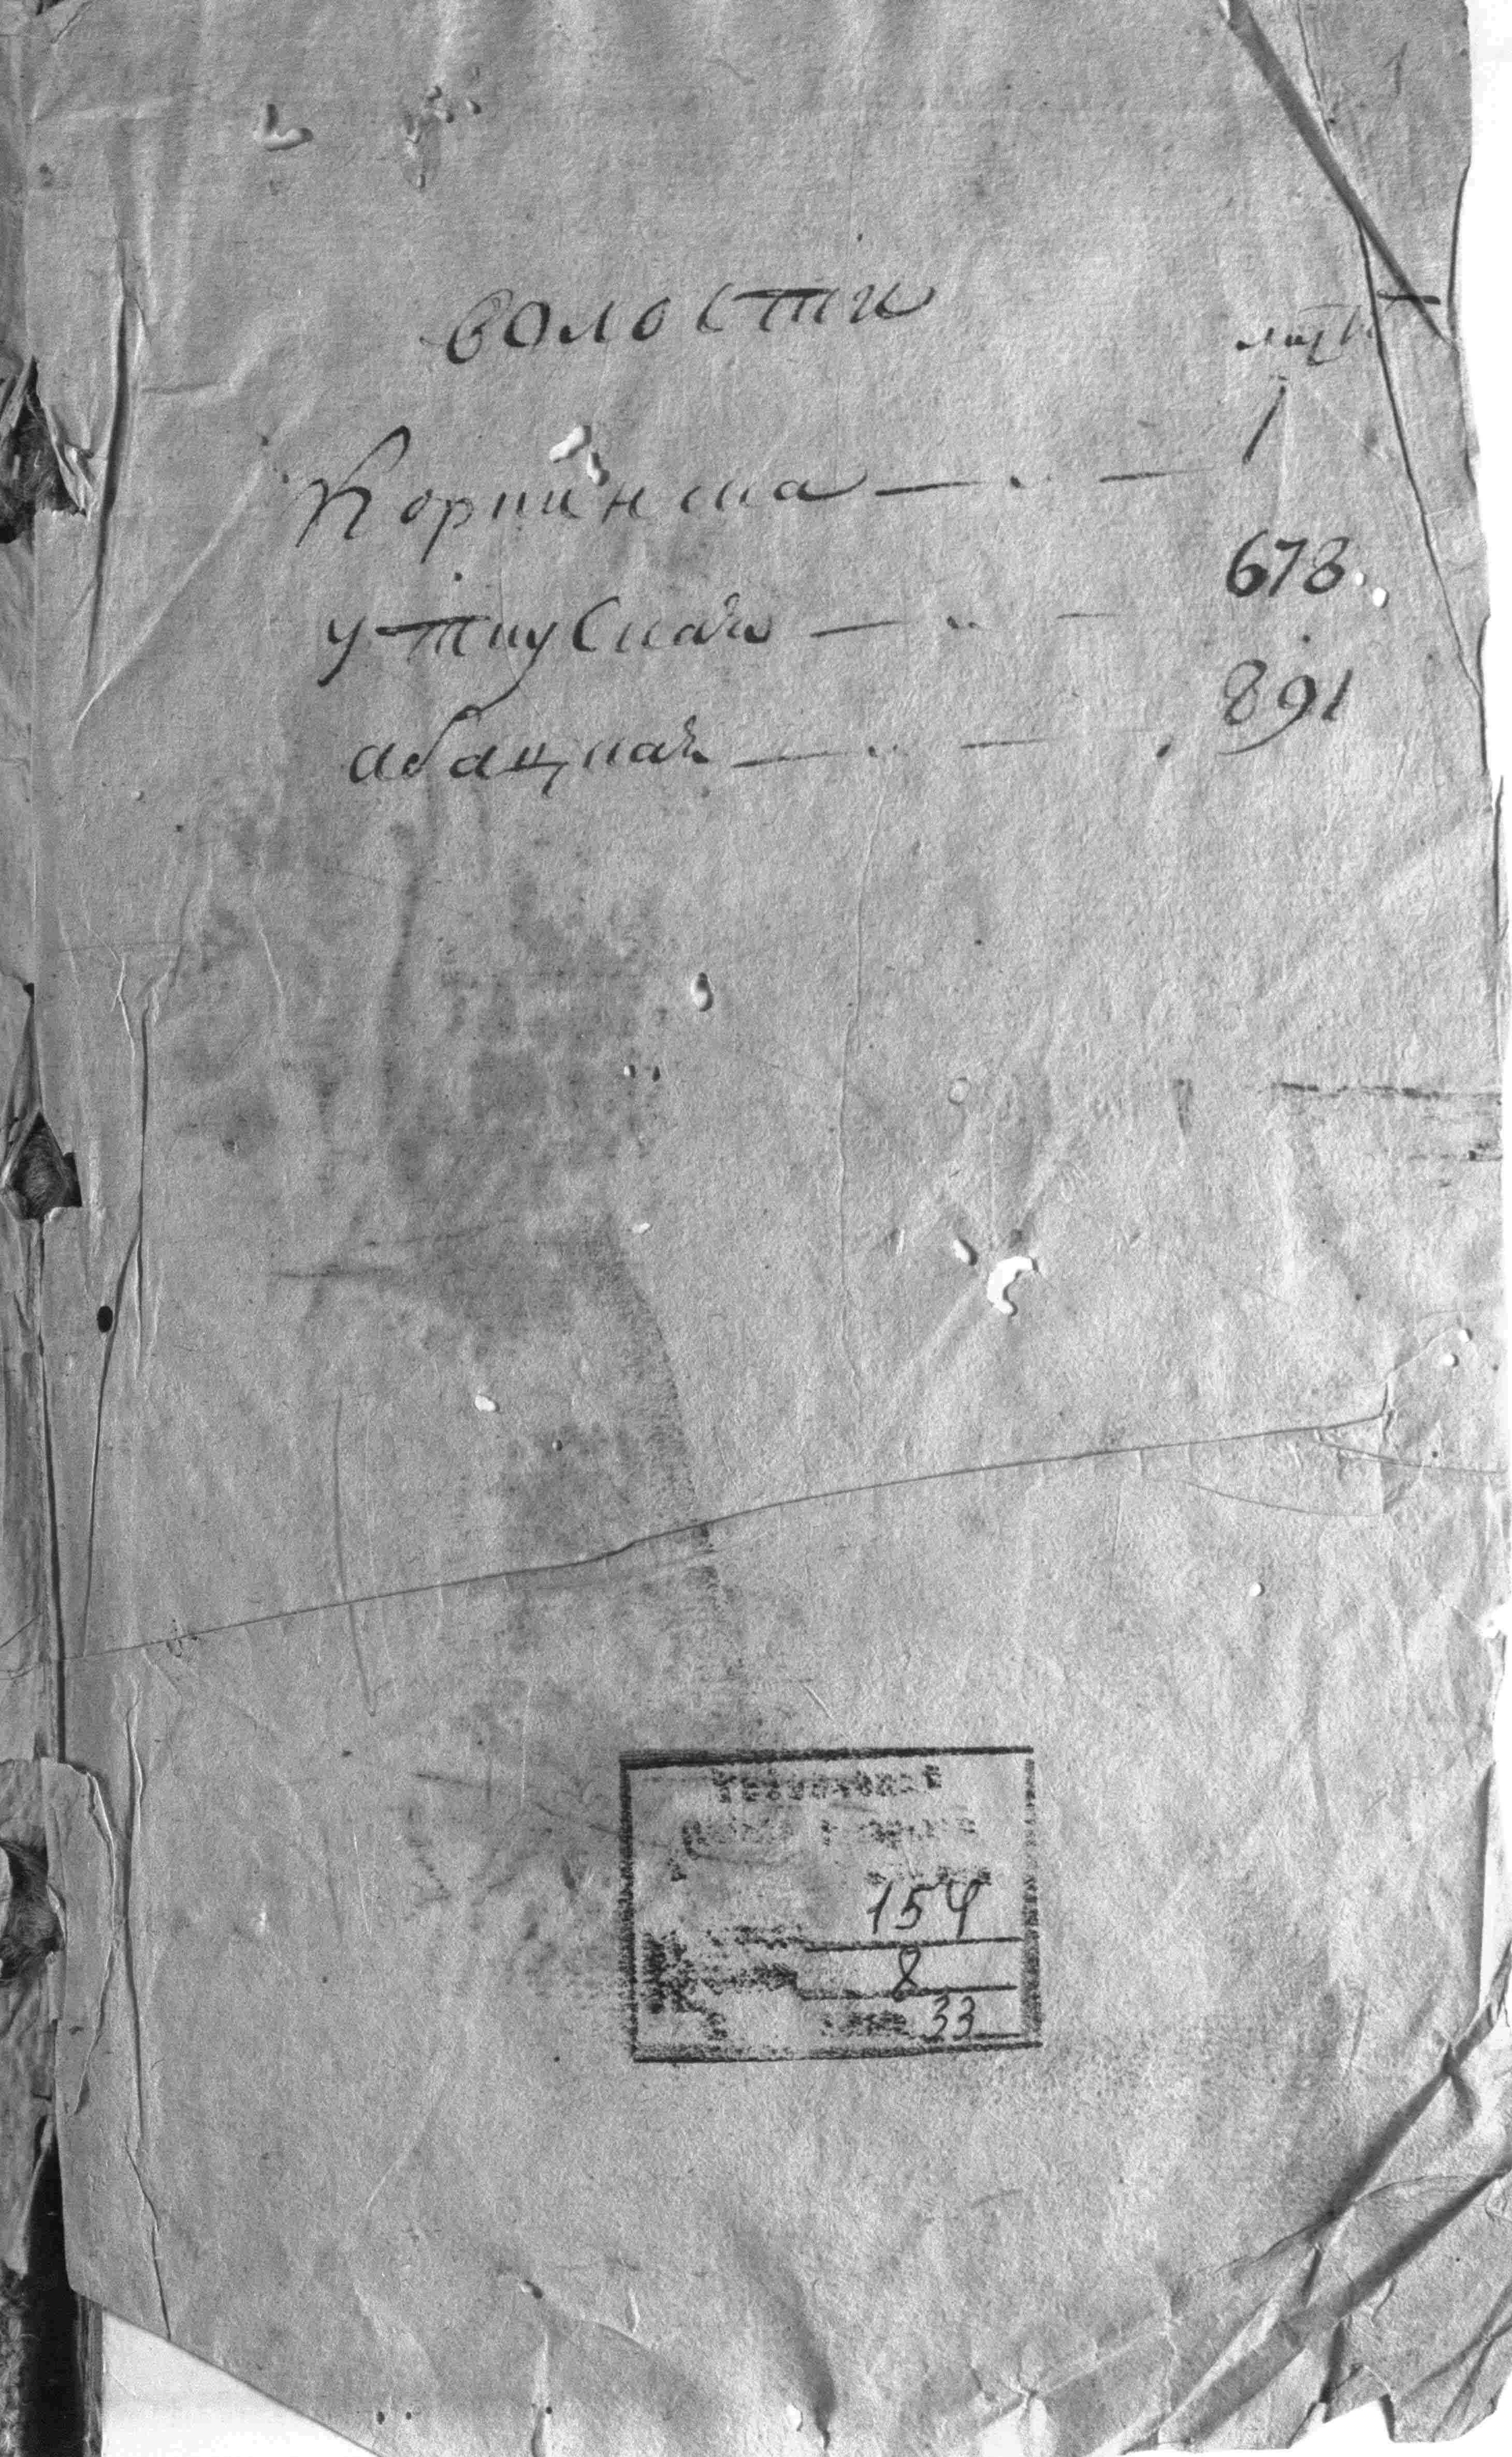 1
волости листы
Коркинска — .. — 1
утчуская — .. — 678.
абацкая — .. — 891
154
8
33